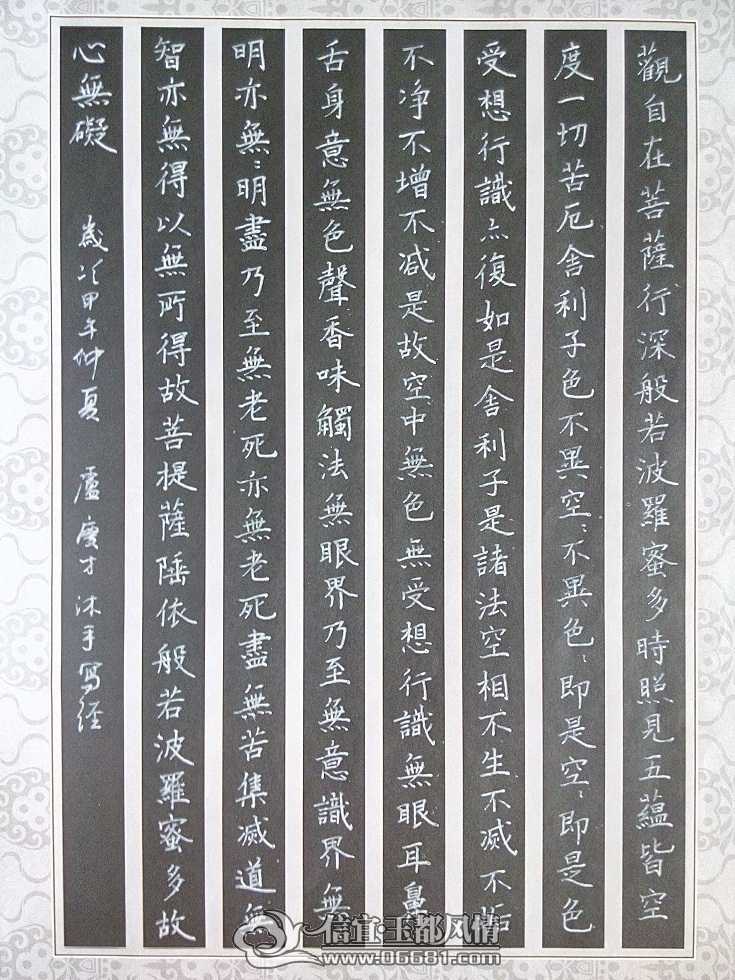 觀自在菩薩行深般若波羅蜜多時照見五蘊皆空
度一切苦厄舍利子色不異空：不異色：即是空：即是色
受想行識亦復如是舍利子是諸法空相不生不滅不垢
不净不增不减是故空中無色無受想行識無眼耳鼻
舌身意無色聲香味觸法無眼界乃至無意識界無
明亦無：明盡乃至無老死亦無老死盡無苦集滅道無
智亦無得以無所得故菩提薩陲依般若波羅蜜多故
心無礙 歲次甲午仲夏 盧慶才沐手寫經
信宜·玉都风情
www.06681.com